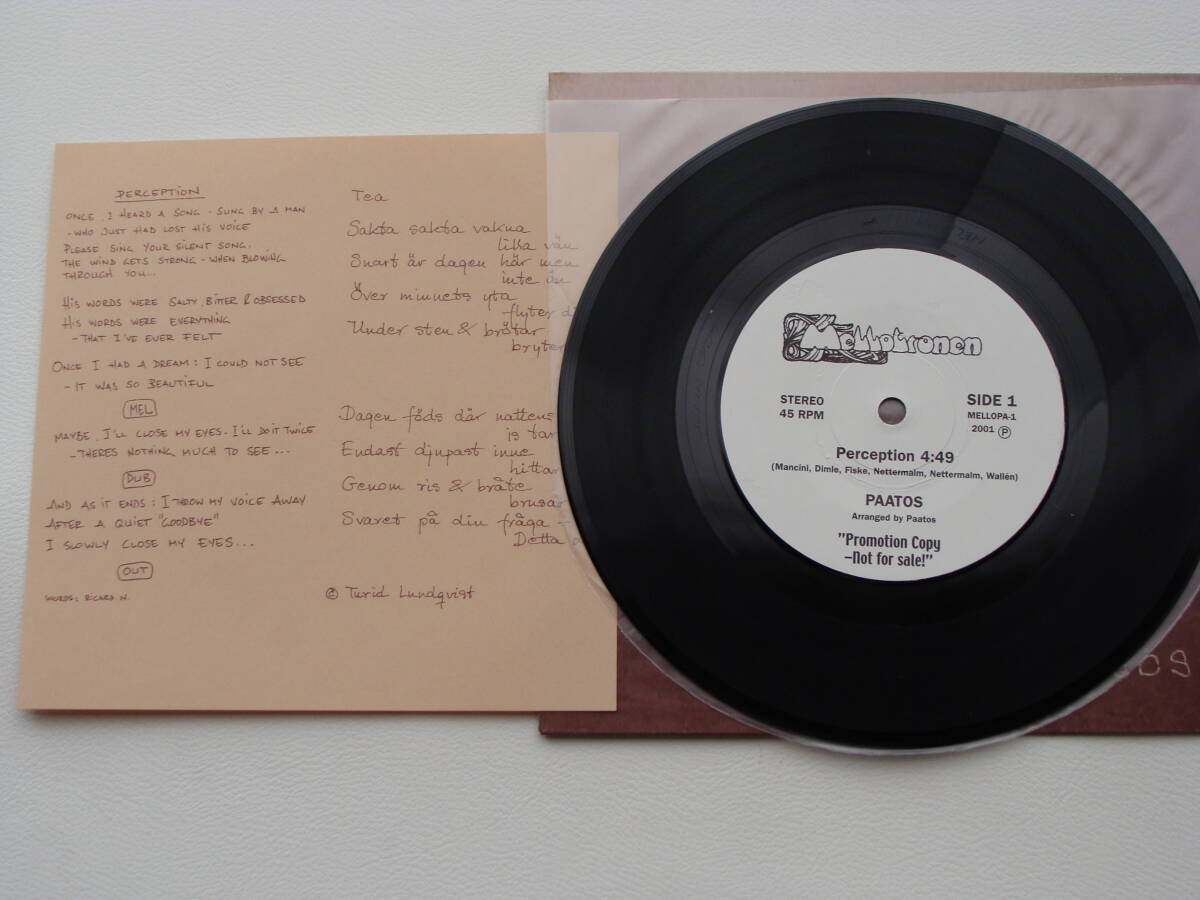 PERCEPTION
ONCE, I HEARD A SONG - SUNG BY A MAN
- WHO JUST HAD LOST HIS VOICE
PLEASE SING YOUR SILENT SONG.
THE WIND GETS STRONG - WHEN BLOWING
THROUGH YOU...
HIS WORDS WERE SALTY, BITTER & OBSESSED
HIS WORDS WERE EVERYTHING
- THAT I'VE EVER FELT
ONCE I HAD A DREAM: I COULD NOT SEE
- IT WAS SO BEAUTIFUL
MEL
MAYBE, I'LL CLOSE MY EYES - I'LL DO IT TWICE
- THERES NOTHING MUCH TO SEE...
DUB
AND AS IT ENDS: I THROW MY VOICE AWAY
AFTER A QUIET "GOODBYE"
I SLOWLY CLOSE MY EYES...
OUT
WORDS: RICARD N.
Tea
Sakta sakta vakna
lilla vän
Snart är dagen här men
inte än
Över minnets yta
flyter
Under sten & brötar
bryter
Dagen föds där nattens
is tar
Endast djupast inne
hittar
Genom ris & bråte
brusar
Svaret på din fråga -
Detta
© Turid Lundqvist
Mellotronen
STEREO
45 RPM
SIDE 1
MELLOPA-1
2001 ℗
Perception 4:49
(Mancini, Dimle, Fiske, Nettermalm, Nettermalm, Wallén)
PAATOS
Arranged by Paatos
"Promotion Copy
–Not for sale!"